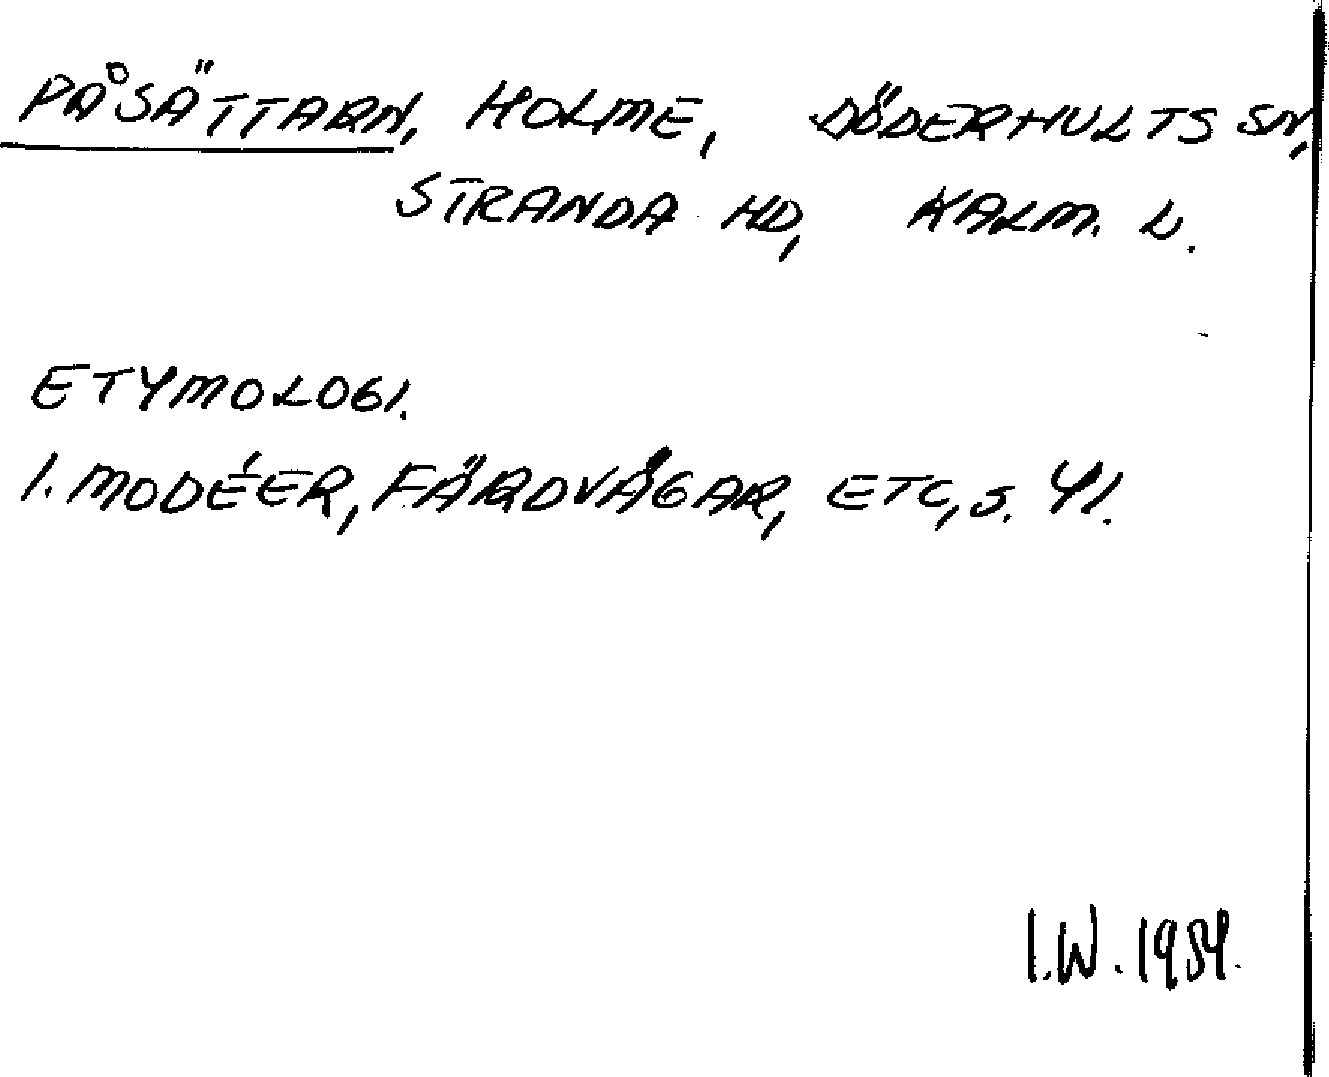 PÅSÄTTARN, HOLME, DÖDERHULTS SN,
STRANDA HD, KALM. L.
ETYMOLOGI.
I. MODÉER, FÄRDVÄGAR, ETC, S. 41.
I.W. 1954.